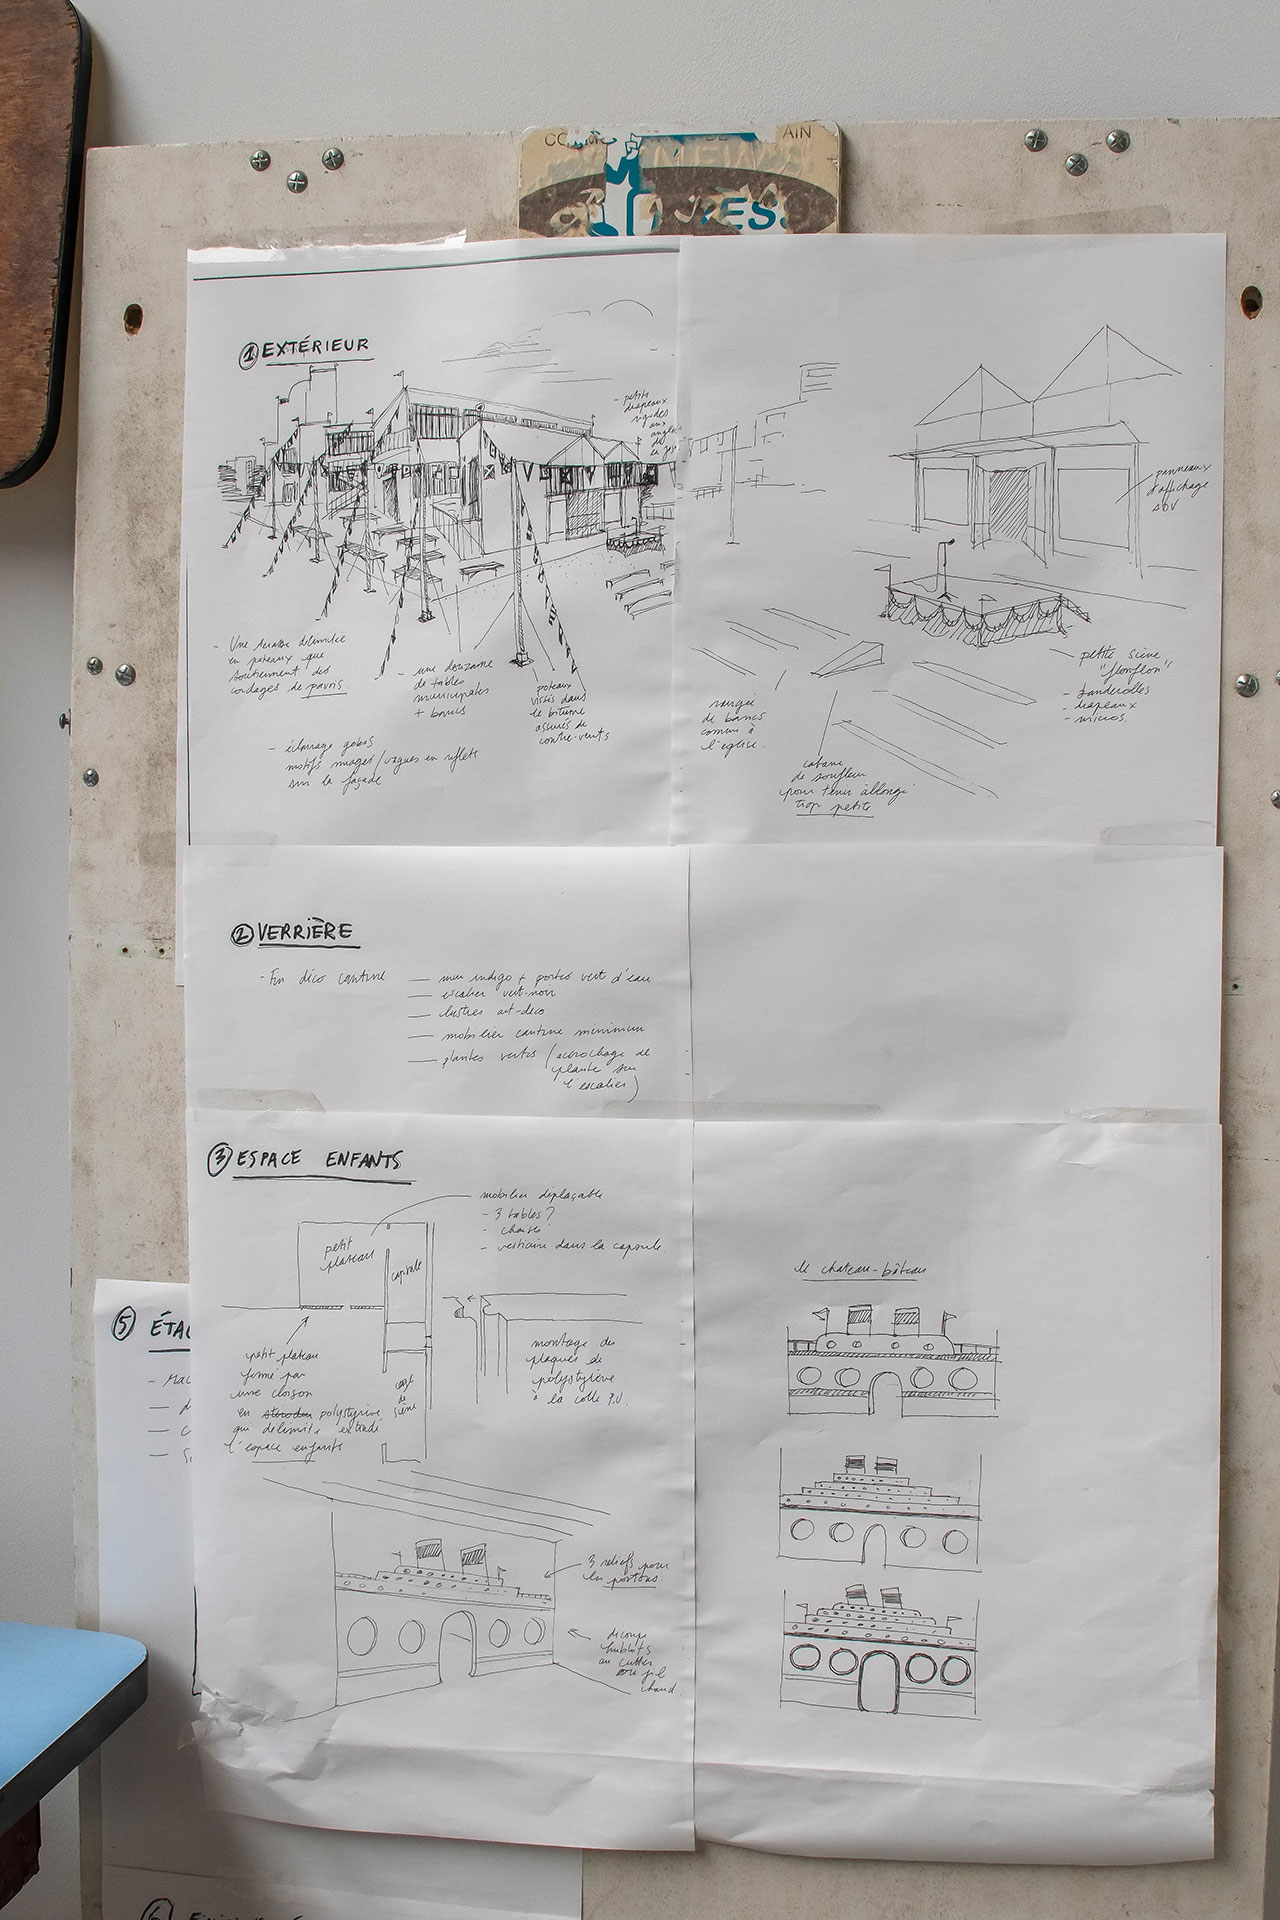 AIN
NEWS
ESS
① EXTÉRIEUR
- petits
drapeaux
rigides
aux
angles
- Une terrasse délimitée
en poteaux que
soutiennent des
cordages de pavois
- une douzaine
de tables
municipales
+ bancs
poteaux
vissés dans
le bitume
assurés de
contre-vents
- éclairage gobos
motifs nuages/vagues en reflets
sur la façade
panneaux
d'affichage
ADV
petite scène
"flonflon"
- banderolles
- drapeaux
- micros.
rangée
de bancs
comme à
l'église.
cabane
de souffleur
pour tenir allongé
trop petite
② VERRIÈRE
- Fin déco cantine
— mur indigo + portes vert d'eau
— escalier vert-noir
— lustres art-deco
— mobilier cantine minimum
— plantes vertes (accrochage de
plante sur
l'escalier)
③ ESPACE ENFANTS
mobilier déplaçable
- 3 tables ?
- chaises
- vestiaire dans la capsule
petit
plateau
capsule
petit plateau
fermé par
une cloison
en polystyrène
qui délimite
l'espace enfants
cage
de
scène
montage des
plaques de
polystyrène
à la colle P.U.
3 reliefs pour
les pontons
découpe
hublots
au cutter
ou fil
chaud
le chateau-bâteau
⑤ ÉTAG
⑥